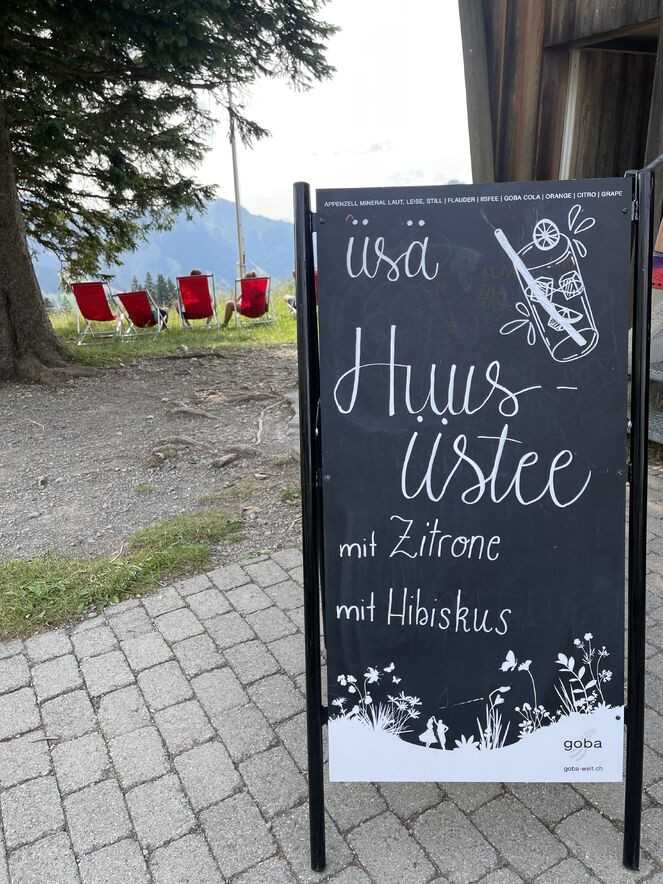 APPENZELL MINERAL LAUT, LEISE, STILL | FLAUDER | IISFEE | GOBA COLA | ORANGE | CITRO | GRAPE
üsä
Huus-
üstee
mit Zitrone
mit Hibiskus
goba
goba-welt.ch